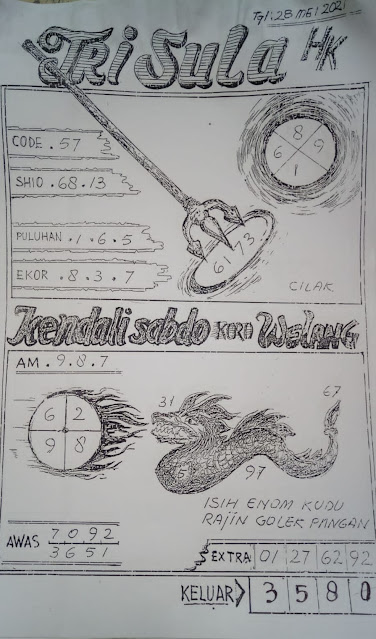 Tgl: 28 MEI 2021
TRI SULA HK
CODE . 57
SHIO . 68 . 13
PULUHAN . 1 . 6 . 5
EKOR . 8 . 3 . 7
8
6 9
1
61 73
CILAK
Kendali sabdo KORO WELANG
AM . 9 . 8 . 7
6 2
9 8
31
67
97
ISIH ENOM KUDU
RAJIN GOLEK PANGAN
AWAS 7 0 9 2
3 6 5 1
EXTRA 01 27 62 92
KELUAR 3 5 8 0